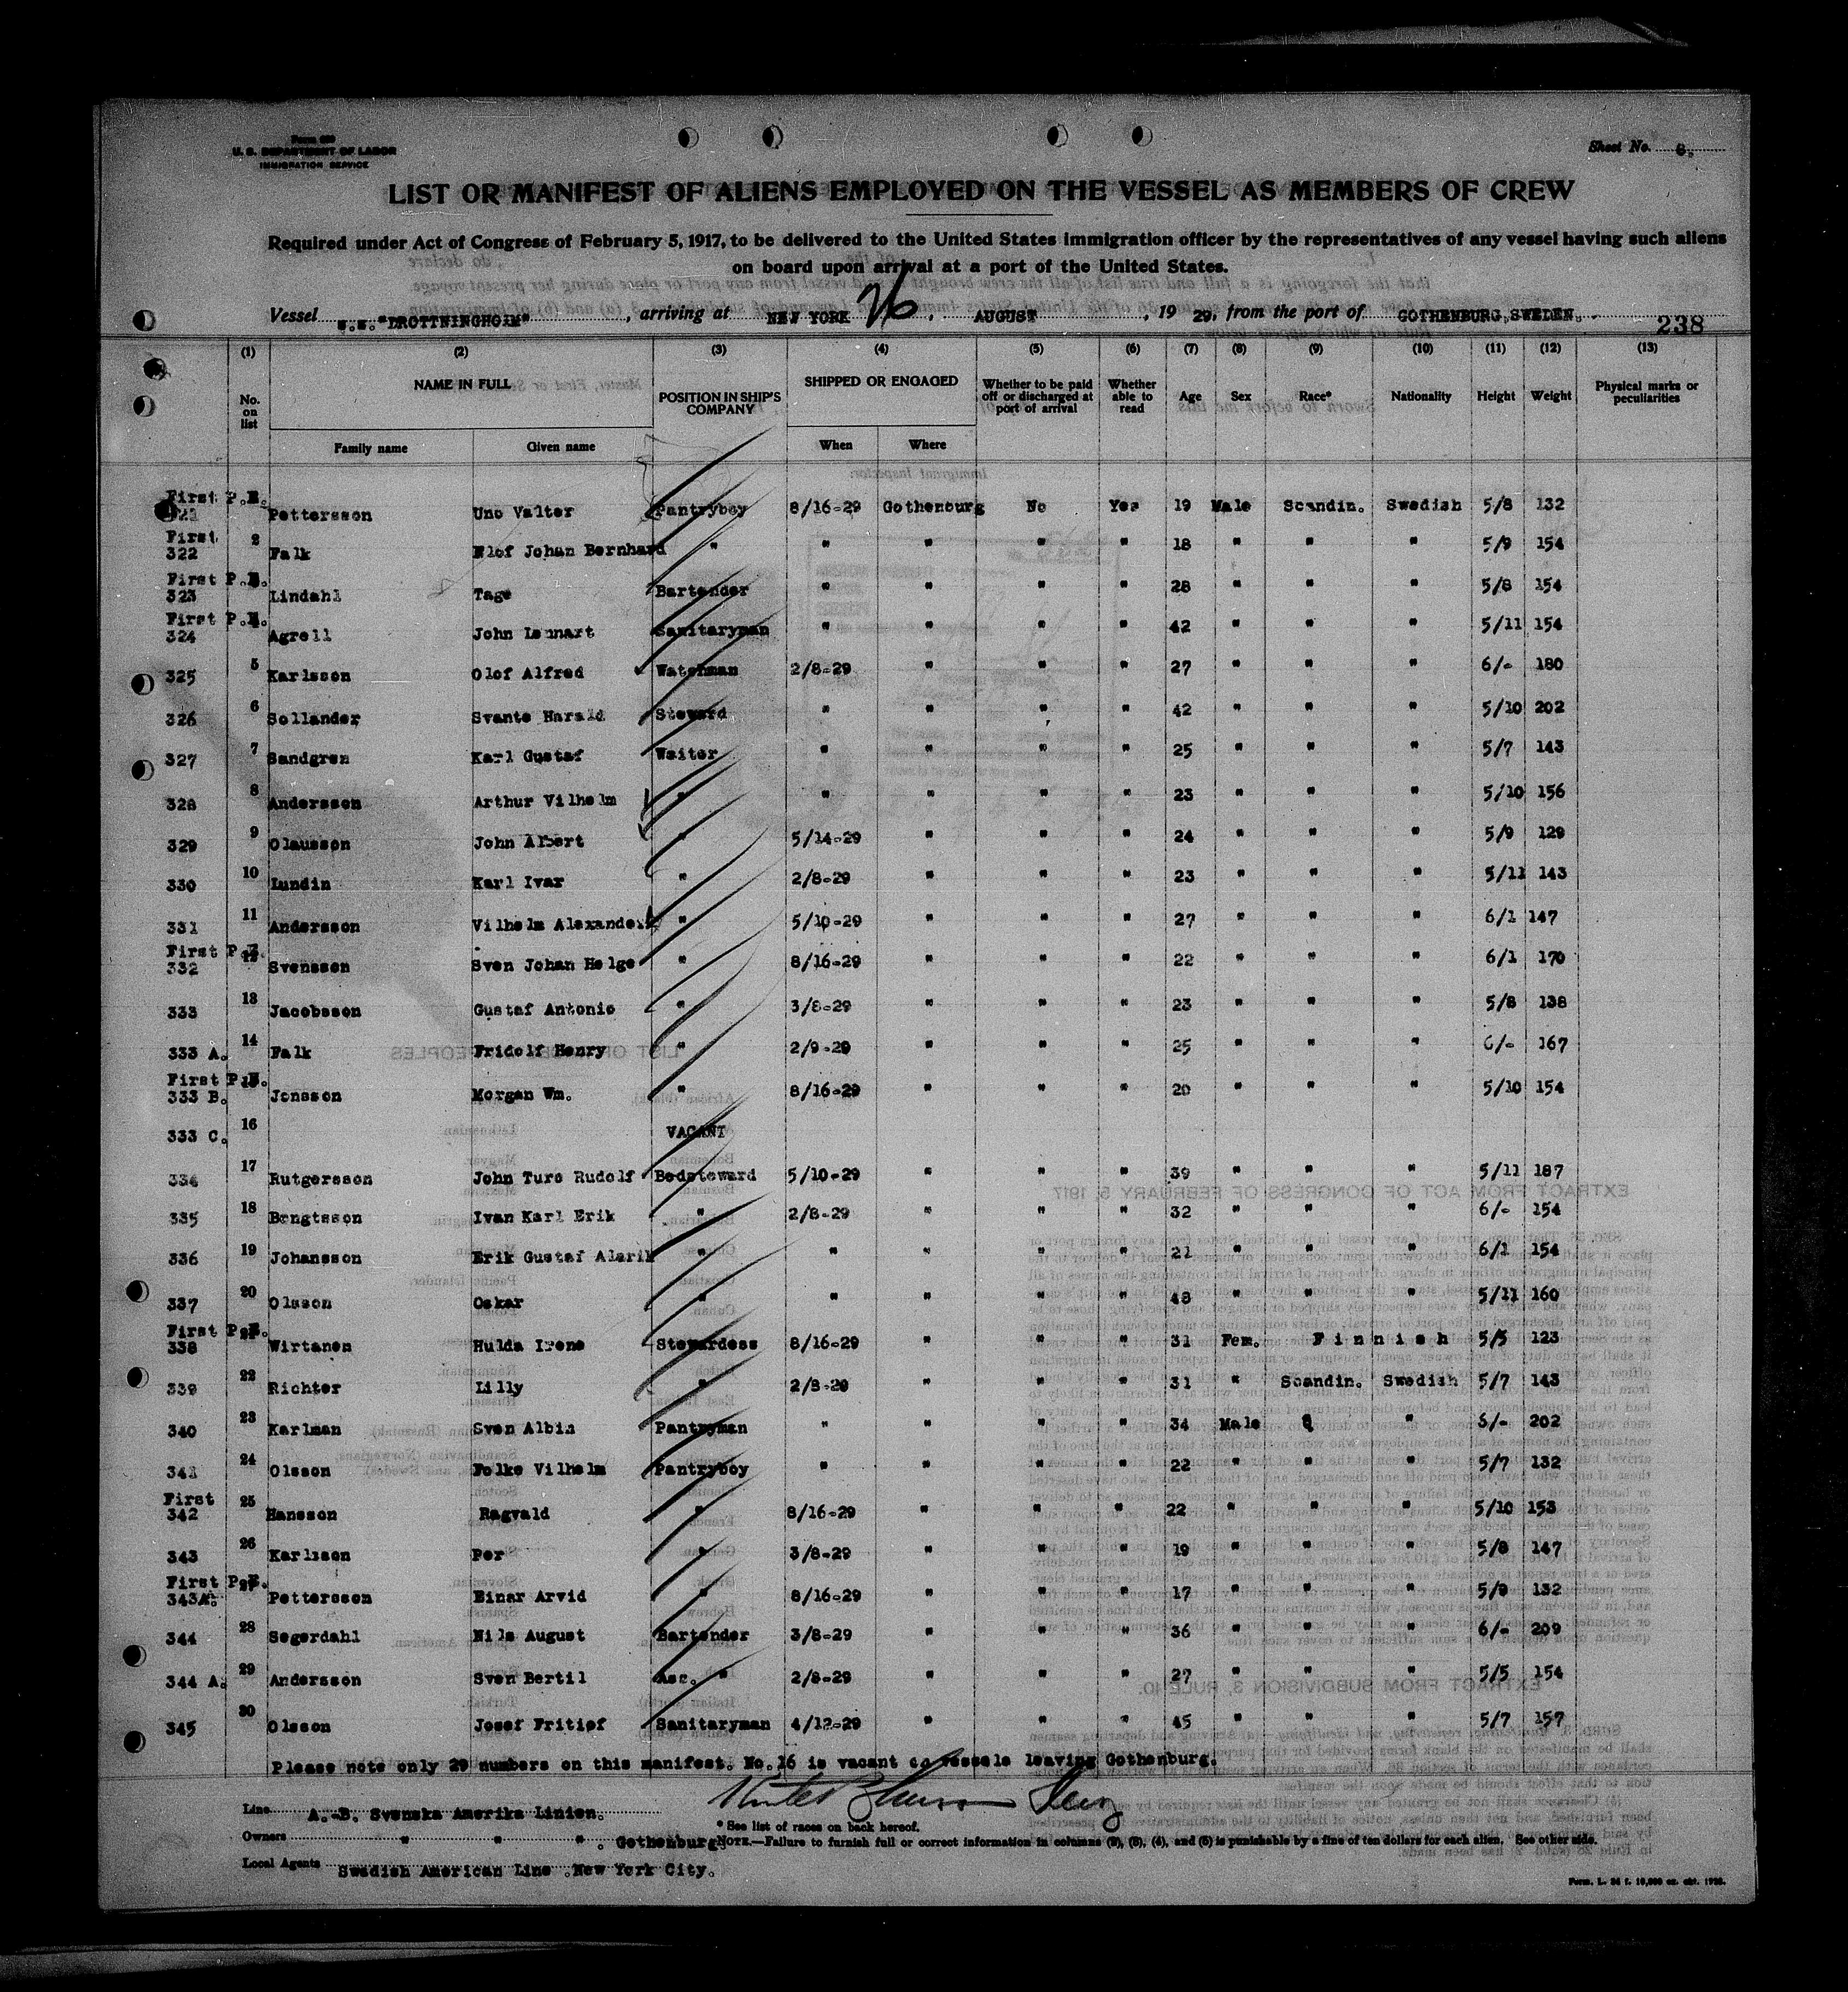 Form 689
U. S. DEPARTMENT OF LABOR
IMMIGRATION SERVICE
Sheet No. 8.
LIST OR MANIFEST OF ALIENS EMPLOYED ON THE VESSEL AS MEMBERS OF CREW
Required under Act of Congress of February 5, 1917, to be delivered to the United States immigration officer by the representatives of any vessel having such aliens
on board upon arrival at a port of the United States.
Vessel S.S."DROTTNINGHOLM", arriving at NEW YORK 26, AUGUST, 19 29, from the port of GOTHENBURG,SWEDEN.
238
(1) (2) (3) (4) (5) (6) (7) (8) (9) (10) (11) (12) (13)
No. on list NAME IN FULL Family name Given name POSITION IN SHIP'S COMPANY SHIPPED OR ENGAGED When Where Whether to be paid off or discharged at port of arrival Whether able to read Age Sex Race* Nationality Height Weight Physical marks or peculiarities
First P.E.
321 Pettersson Uno Valter Pantryboy 8/16-29 Gothenburg No Yes 19 Male Scandin. Swedish 5/8 132
First
322 2 Falk Elof Johan Bernhard " " " " " 18 " " " 5/9 154
First P.E.
323 Lindahl Tage Bartender " " " " 28 " " " 5/8 154
First P.E.
324 Agrell John Lennart Sanitaryman " " " " 42 " " " 5/11 154
325 5 Karlsson Olof Alfred Watchman 2/8-29 " " " 27 " " " 6/- 180
326 6 Sollander Svante Harald Steward " " " " 42 " " " 5/10 202
327 7 Sandgren Karl Gustaf Waiter " " " " 25 " " " 5/7 143
328 8 Andersson Arthur Vilhelm " " " " " 23 " " " 5/10 156
329 9 Olausson John Albert " 5/14-29 " " " 24 " " " 5/9 129
330 10 Lundin Karl Ivar " 2/8-29 " " " 23 " " " 5/11 143
331 11 Andersson Vilhelm Alexander " 5/10-29 " " " 27 " " " 6/1 147
First P.E.
332 12 Svensson Sven Johan Helge " 8/16-29 " " " 22 " " " 6/1 170
333 13 Jacobsson Gustaf Antonio " 3/8-29 " " " 23 " " " 5/8 138
333 A. 14 Falk Fridolf Henry " 2/9-29 " " " 25 " " " 6/- 167
First P.E.
333 B. Jonsson Morgan Wm. " 8/16-29 " " " 20 " " " 5/10 154
333 C. 16 VACANT
334 17 Rutgersson John Ture Rudolf Bedsteward 5/10-29 " " " 39 " " " 5/11 187
335 18 Bengtsson Ivan Karl Erik " 2/8-29 " " " 32 " " " 6/- 154
336 19 Johansson Erik Gustaf Alarik " " " " " 21 " " " 6/1 154
337 20 Olsson Oskar " " " " " 48 " " " 5/11 160
First P.E.
338 21 Wirtanen Hulda Irene Stewardess 8/16-29 " " " 31 Fem. Finnish 5/5 123
339 22 Richter Lilly " 2/8-29 " " " 31 " Scandin. Swedish 5/7 143
340 23 Karlman Sven Albin Pantryman " " " " 34 Male " " 6/- 202
341 24 Olsson Folke Vilhelm Pantryboy " " " " 22 " " " 5/7 132
First
342 25 Hansson Ragvald " 8/16-29 " " " 22 " " " 5/10 153
343 26 Karlsson Per " 3/8-29 " " " 19 " " " 5/8 147
First P.E.
343A. 27 Pettersson Einar Arvid " 8/16-29 " " " 17 " " " 5/9 132
344 28 Segerdahl Nils August Bartender 3/8-29 " " " 36 " " " 6/- 209
344 A. 29 Andersson Sven Bertil Asc. " 2/8-29 " " " 27 " " " 5/5 154
345 30 Olsson Josef Fritiof Sanitaryman 4/12-29 " " " 45 " " " 5/7 157
Please note only 29 numbers on this manifest. No.16 is vacant on vessels leaving Gothenburg.
Line A.-B. Svenska Amerika Linien.
* See list of races on back hereof.
Owners " " ". Gothenburg.
NOTE.—Failure to furnish full or correct information in columns (2), (3), (4), and (5) is punishable by a fine of ten dollars for each alien. See other side.
Local Agents Swedish American Line .New York City.